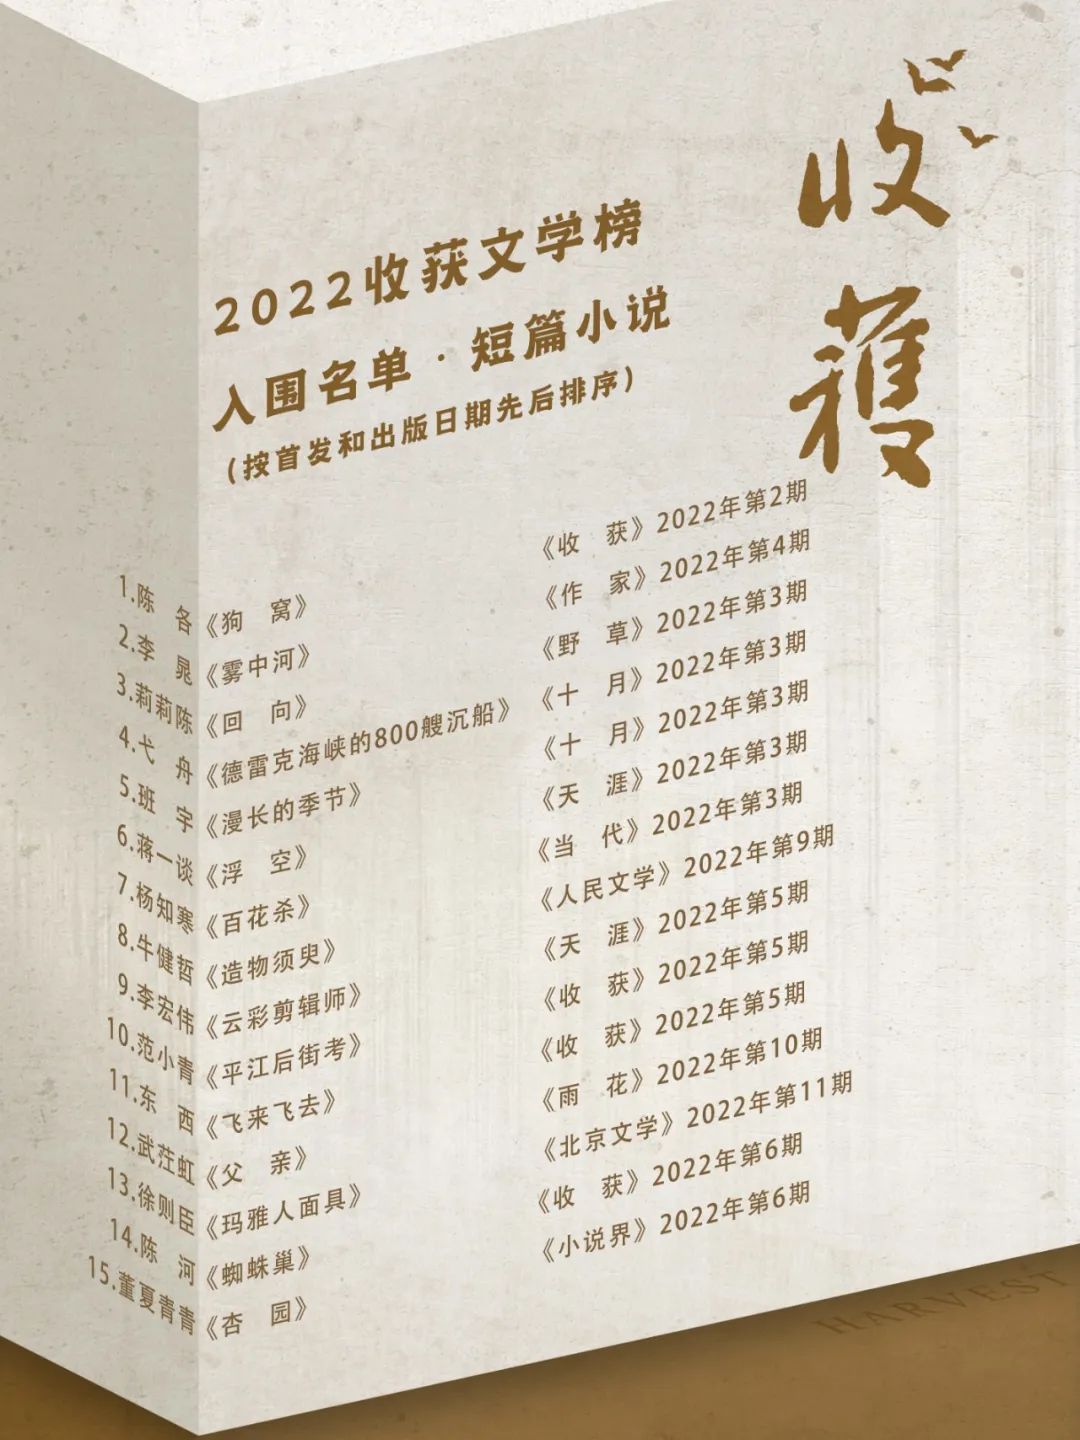 收獲
2022收获文学榜
入围名单·短篇小说
（按首发和出版日期先后排序）
1.陈　各《狗　窝》《收　获》2022年第2期
2.李　晁《雾中河》《作　家》2022年第4期
3.莉莉陈《回　向》《野　草》2022年第3期
4.弋　舟《德雷克海峡的800艘沉船》《十　月》2022年第3期
5.班　宇《漫长的季节》《十　月》2022年第3期
6.蒋一谈《浮　空》《天　涯》2022年第3期
7.杨知寒《百花杀》《当　代》2022年第3期
8.牛健哲《造物须臾》《人民文学》2022年第9期
9.李宏伟《云彩剪辑师》《天　涯》2022年第5期
10.范小青《平江后街考》《收　获》2022年第5期
11.东　西《飞来飞去》《收　获》2022年第5期
12.武茳虹《父　亲》《雨　花》2022年第10期
13.徐则臣《玛雅人面具》《北京文学》2022年第11期
14.陈　河《蜘蛛巢》《收　获》2022年第6期
15.董夏青青《杏　园》《小说界》2022年第6期
HARVEST